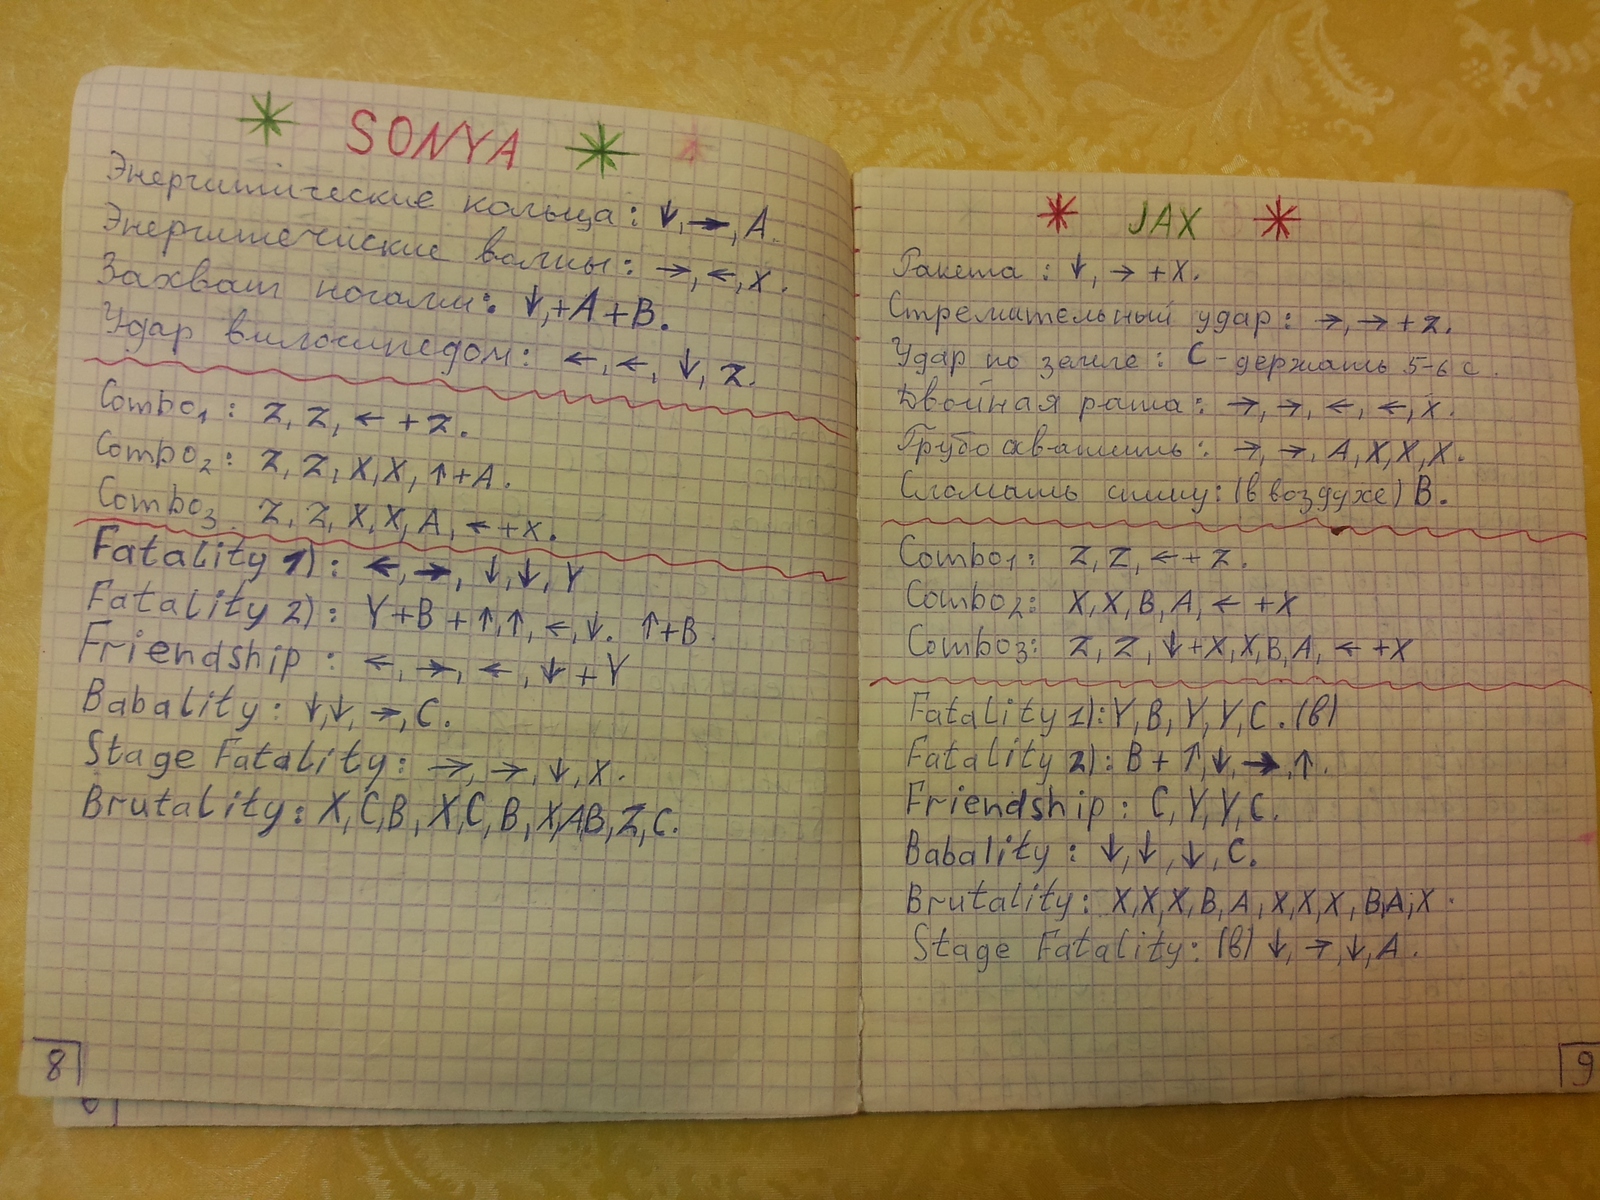 SONYA
Энергитические кольца: ↓, →, A.
Энергитечиские волны: →, ←, X.
Захват ногами: ↓, +A+B.
Удар вилосипедом: ←, ←, ↓, Z.
Combo1: Z, Z, ← + Z.
Combo2: Z, Z, X, X, ↑+A.
Combo3 Z, Z, X, X, A, ← +X.
Fatality 1): ←, →, ↓, ↓, Y
Fatality 2): Y+B+↑,↑, ←, ↓. ↑+B.
Friendship : ←, →, ←, ↓ +Y
Babality: ↓,↓, →, C.
Stage Fatality: →, →, ↓, X.
Brutality: X, C,B, X,C, B, X,AB, Z, C.
8
JAX
Ракета : ↓, → +X.
Стремительный удар: →, → + Z.
Удар по земле: C - держать 5-6 с.
Двойная рата: →, →, ←, ←, X.
Грубо хватить: →, →, A, X, X, X.
Сломать спину: (в воздухе) B.
Combo1: Z, Z, ← + Z.
Combo2: X, X, B, A, ← +X
Combo3: Z, Z, ↓+X, X, B, A, ← +X
Fatality 1): Y, B, Y, Y, C. (в)
Fatality 2): B + ↑, ↓, →, ↑.
Friendship : C, Y, Y, C.
Babality : ↓, ↓, ↓, C.
Brutality: X, X, X, B, A, X, X, X, B,A, X.
Stage Fatality: (в) ↓, →, ↓, A.
9